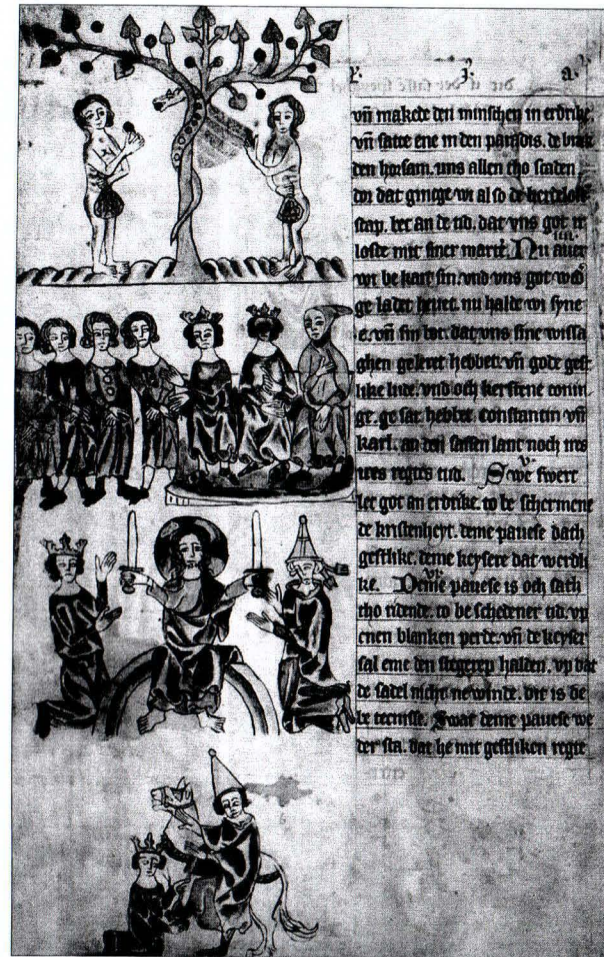 vn̄ makede den minschen in erdrike.
vn̄ satte ene in den paradis. de brak
den horsam. uns allen tho scaden
dor dat ginge wi also de herdelosen
scap. bet an de tid. dat vns got ir
loste mit siner marter. Nu auer
wi be kart sin. vnd vns got
ge ladet hevet. nu halde wi syne
e. vn̄ sin bot. dat vns sine wissa
ghen geleret hebbet. vn̄ gode gest
like lude. vnd och kerstene conin
ge. ge sat. hebbet. constantin vn̄
karl. an den sassen lant noch
regtes tid. Swe swert
let got an erdrike. to be schermene
de kristenheyt. deme pauese dath
gestlike. deme keysere dat werdli
ke. Deme pauese is och sath
tho ridende. to be schedener tid. vp
enen blanken perde. vn̄ de keyser
sal eme den stegerep halden. vp dat
de sadel nicht ne winde. dit is de
be tecnisse. Swat deme pauese we
der sta. dat he mit gestliken regte